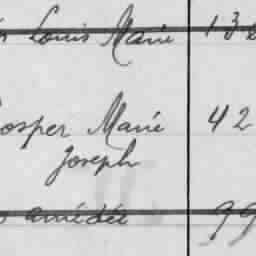 Louis Marie 132
Prosper Marie 42
Joseph
amédée 99